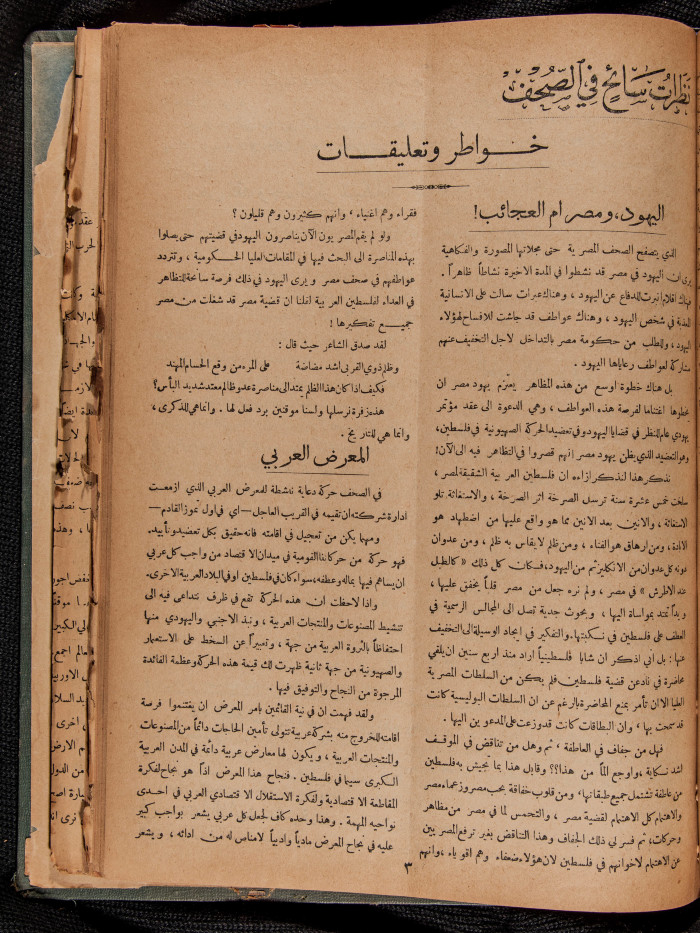 نظرات سائح في الصحف
خواطر وتعليقات
اليهود، ومصر ام العجائب!
الذي يتصفح الصحف المصرية حتى مجلاتها المصورة والفكاهية
يرى ان اليهود في مصر قد نشطوا في المدة الاخيرة نشاطاً ظاهراً.
فهناك اقلام انبرت للدفاع عن اليهود، وهناك عبرات سالت على الانسانية
المعذبة في شخص اليهود، وهناك عواطف قد جاشت للافساح لهؤلاء
اليهود، والطلب من حكومة مصر بالتداخل لاجل التخفيف عنهم
مشاركة لعواطف رعاياها اليهود.
بل هناك خطوة اوسع من هذه المظاهر يعتزم يهود مصر ان
يخطوها اغتناما لفرصة هذه العواطف، وهي الدعوة الى عقد مؤتمر
يهودي عام للنظر في قضايا اليهود وفي تعضيد الحركة الصهيونية في فلسطين،
وهو التعضيد الذي يظن يهود مصر انهم قصروا في التظاهر فيه الى الآن!
نذكر هذا لنذكر ازاءه ان فلسطين العربية الشقيقة لمصر،
سلخت خمس عشرة سنة ترسل الصرخة اثر الصرخة، والاستغاثة تلو
الاستغاثة، والانين بعد الانين مما هو واقع عليها من اضطهاد هو
الابادة، ومن ارهاق هو الفناء، ومن ظلم لا يقاس به ظلم، ومن عدوان
دونه كل عدوان من الانكليز ثم من اليهود، فكان كل ذلك «كالطبل
عند الاطرش» في مصر، ولم نره جعل من مصر قلباً يخفق عليها،
ويداً تمتد بمواساة اليها، وبحوث جدية تصل الى المجالس الرسمية في
العطف على فلسطين في نكبتها، والتفكير في ايجاد الوسيلة الى التخفيف
عنها: بل اني اذكر ان شابا فلسطينياً اراد منذ اربع سنين ان يلقي
محاضرة في ناد عن قضية فلسطين فلم يكن من السلطات المصرية
العليا الا ان تأمر بمنع المحاضرة بالرغم عن ان السلطات البوليسية كانت
قد سمحت بها، وان البطاقات كانت قد وزعت على المدعوين اليها.
فهل من جفاف في العاطفة، ثم وهل من تناقض في الموقف
اشد نسكاية، واوجع ألماً من هذا؟؟ وقابل هذا بما يجيش به فلسطين
من عاطفة تشتمل جميع طبقاتها، ومن قلوب خفاقة بحب مصر وزعماء مصر
والاهتمام كل الاهتمام لقضية مصر، والتحمس لما في مصر من مظاهر
وحركات، ثم فسر لي ذلك الجفاف وهذا التناقض بغير ترفع المصريين
عن الاهتمام لاخوانهم في فلسطين لان هؤلاء ضعفاء وهم اقوياء، وانهم
فقراء وهم اغنياء، وانهم كثيرون وهم قليلون؟
ولو لم يقم المصريون الآن يناصرون اليهود في قضيتهم حتى يصلوا
بهذه المناصرة الى البحث فيها في المقامات العليا الحكومية، وتتردد
عواطفهم في صحف مصر ويرى اليهود في ذلك فرصة سانحة للتظاهر
في العداء لفلسطين العربية لقلنا ان قضية مصر قد شغلت من مصر
جميع تفكيرها!
لقد صدق الشاعر حيث قال:
وظلم ذوي القربى اشد مضاضة على المرء من وقع الحسام المهند
فكيف اذا كان هذا الظلم يمتد الى مناصرة عدو ظالم معتد شديد البأس؟
هذه زفرة نرسلها ولسنا موقنين برد فعل لها. وانما هي للذكرى،
وانما هي للتاريخ.
المعرض العربي
في الصحف حركة دعاية ناشطة للمعرض العربي الذي ازمعت
ادارة شركته ان تقيمه في القريب العاجل — اي في اول تموز القادم —
ومهما يكن من تعجيل في اقامته فانه حقيق بكل تعضيد وتأييد.
فهو حركة من حركاتنا القومية في ميدان الاقتصاد من واجب كل عربي
ان يساهم فيها بماله وعطفه، سواء كان في فلسطين او في البلاد العربية الاخرى.
واذا لاحظت ان هذه الحركة تقع في ظرف نتداعى فيه الى
تنشيط المصنوعات والمنتجات العربية، ونبذ الاجنبي واليهودي منها
احتفاظاً بالثروة العربية من جهة، وتعبيراً عن السخط على الاستعمار
والصهيونية من جهة ثانية ظهرت لك قيمة هذه الحركة وعظمة الفائدة
المرجوة من النجاح والتوفيق فيها.
ولقد فهمت ان في نية القائمين بامر المعرض ان يغتنموا فرصة
اقامته للخروج منه بشركة عربية تتولى تأمين الحاجات دائماً من المصنوعات
والمنتجات العربية، ويكون لها معارض عربية دائمة في المدن العربية
الكبرى سيما في فلسطين. فنجاح هذا المعرض اذاً هو نجاح لفكرة
المقاطعة الاقتصادية ولفكرة الاستقلال الاقتصادي العربي في احدى
نواحيه المهمة. وهذا وحده كاف لجعل كل عربي يشعر بواجب كبير
عليه في نجاح المعرض مادياً وادبياً لا مناص له من ادائه، ويشعر
٣